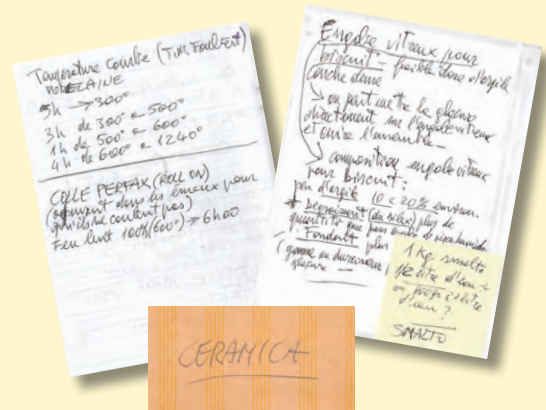 Température Courbe (TIM. Foulfert)
PORCELAINE
5h → 300°
3h de 300° a 500°
1h de 500° a 600°
4h de 600° a 1240°
COLLE PERFAX (ROLL ON)
dans les émeux pour
coulent pas)
Feu lent 100% (600°) → 6h00
Engobe vitreux pour
biscuit - faible dose d'argile
couche dense
→ on peut mettre la glaçure
directement sur l'engobe vitreux
et cuire l'ensemble -
→ composition engobe vitreux
pour biscuit:
peu d'argile 10 a 20% environ.
(du silex) plus de
quantité que
Fondant plus
(gomme ou
glaçure
1 Kg smalto
1/2 litre d'eau
ou litre
d'eau?
SMALTO
CERAMICA